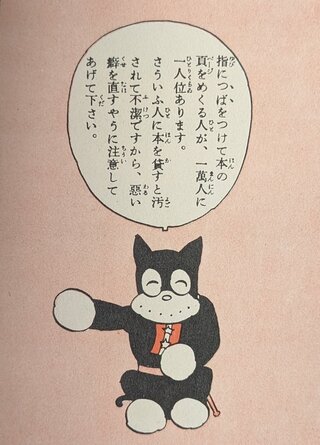 指につばをつけて本の
頁をめくる人が、一萬人に
一人位あります。
さういふ人に本を貸すと汚
されて不潔ですから、惡い
癖を直すやうに注意して
あげて下さい。